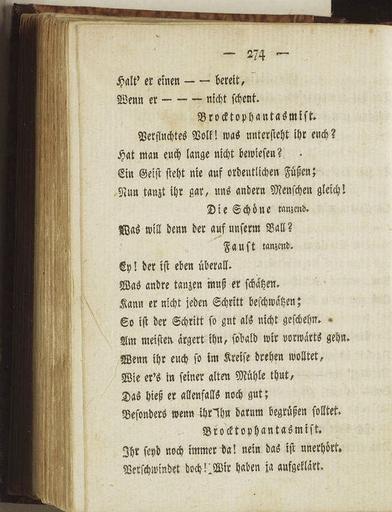 — 274 —
Halt' er einen — — bereit,
Wenn er — — — nicht scheut.
Brocktophantasmist.
Verfluchtes Volk! was untersteht ihr euch?
Hat man euch lange nicht bewiesen?
Ein Geist steht nie auf ordentlichen Füßen;
Nun tanzt ihr gar, uns andern Menschen gleich!
Die Schöne tanzend.
Was will denn der auf unserm Ball?
Faust tanzend.
Ey! der ist eben überall.
Was andre tanzen muß er schätzen.
Kann er nicht jeden Schritt beschwätzen;
So ist der Schritt so gut als nicht geschehn.
Am meisten ärgert ihn, sobald wir vorwärts gehn.
Wenn ihr euch so im Kreise drehen wolltet,
Wie er's in seiner alten Mühle thut,
Das hieß er allenfalls noch gut;
Besonders wenn ihr ihn darum begrüßen solltet.
Brocktophantasmist.
Ihr seyd noch immer da! nein das ist unerhört.
Verschwindet doch! Wir haben ja aufgeklärt.